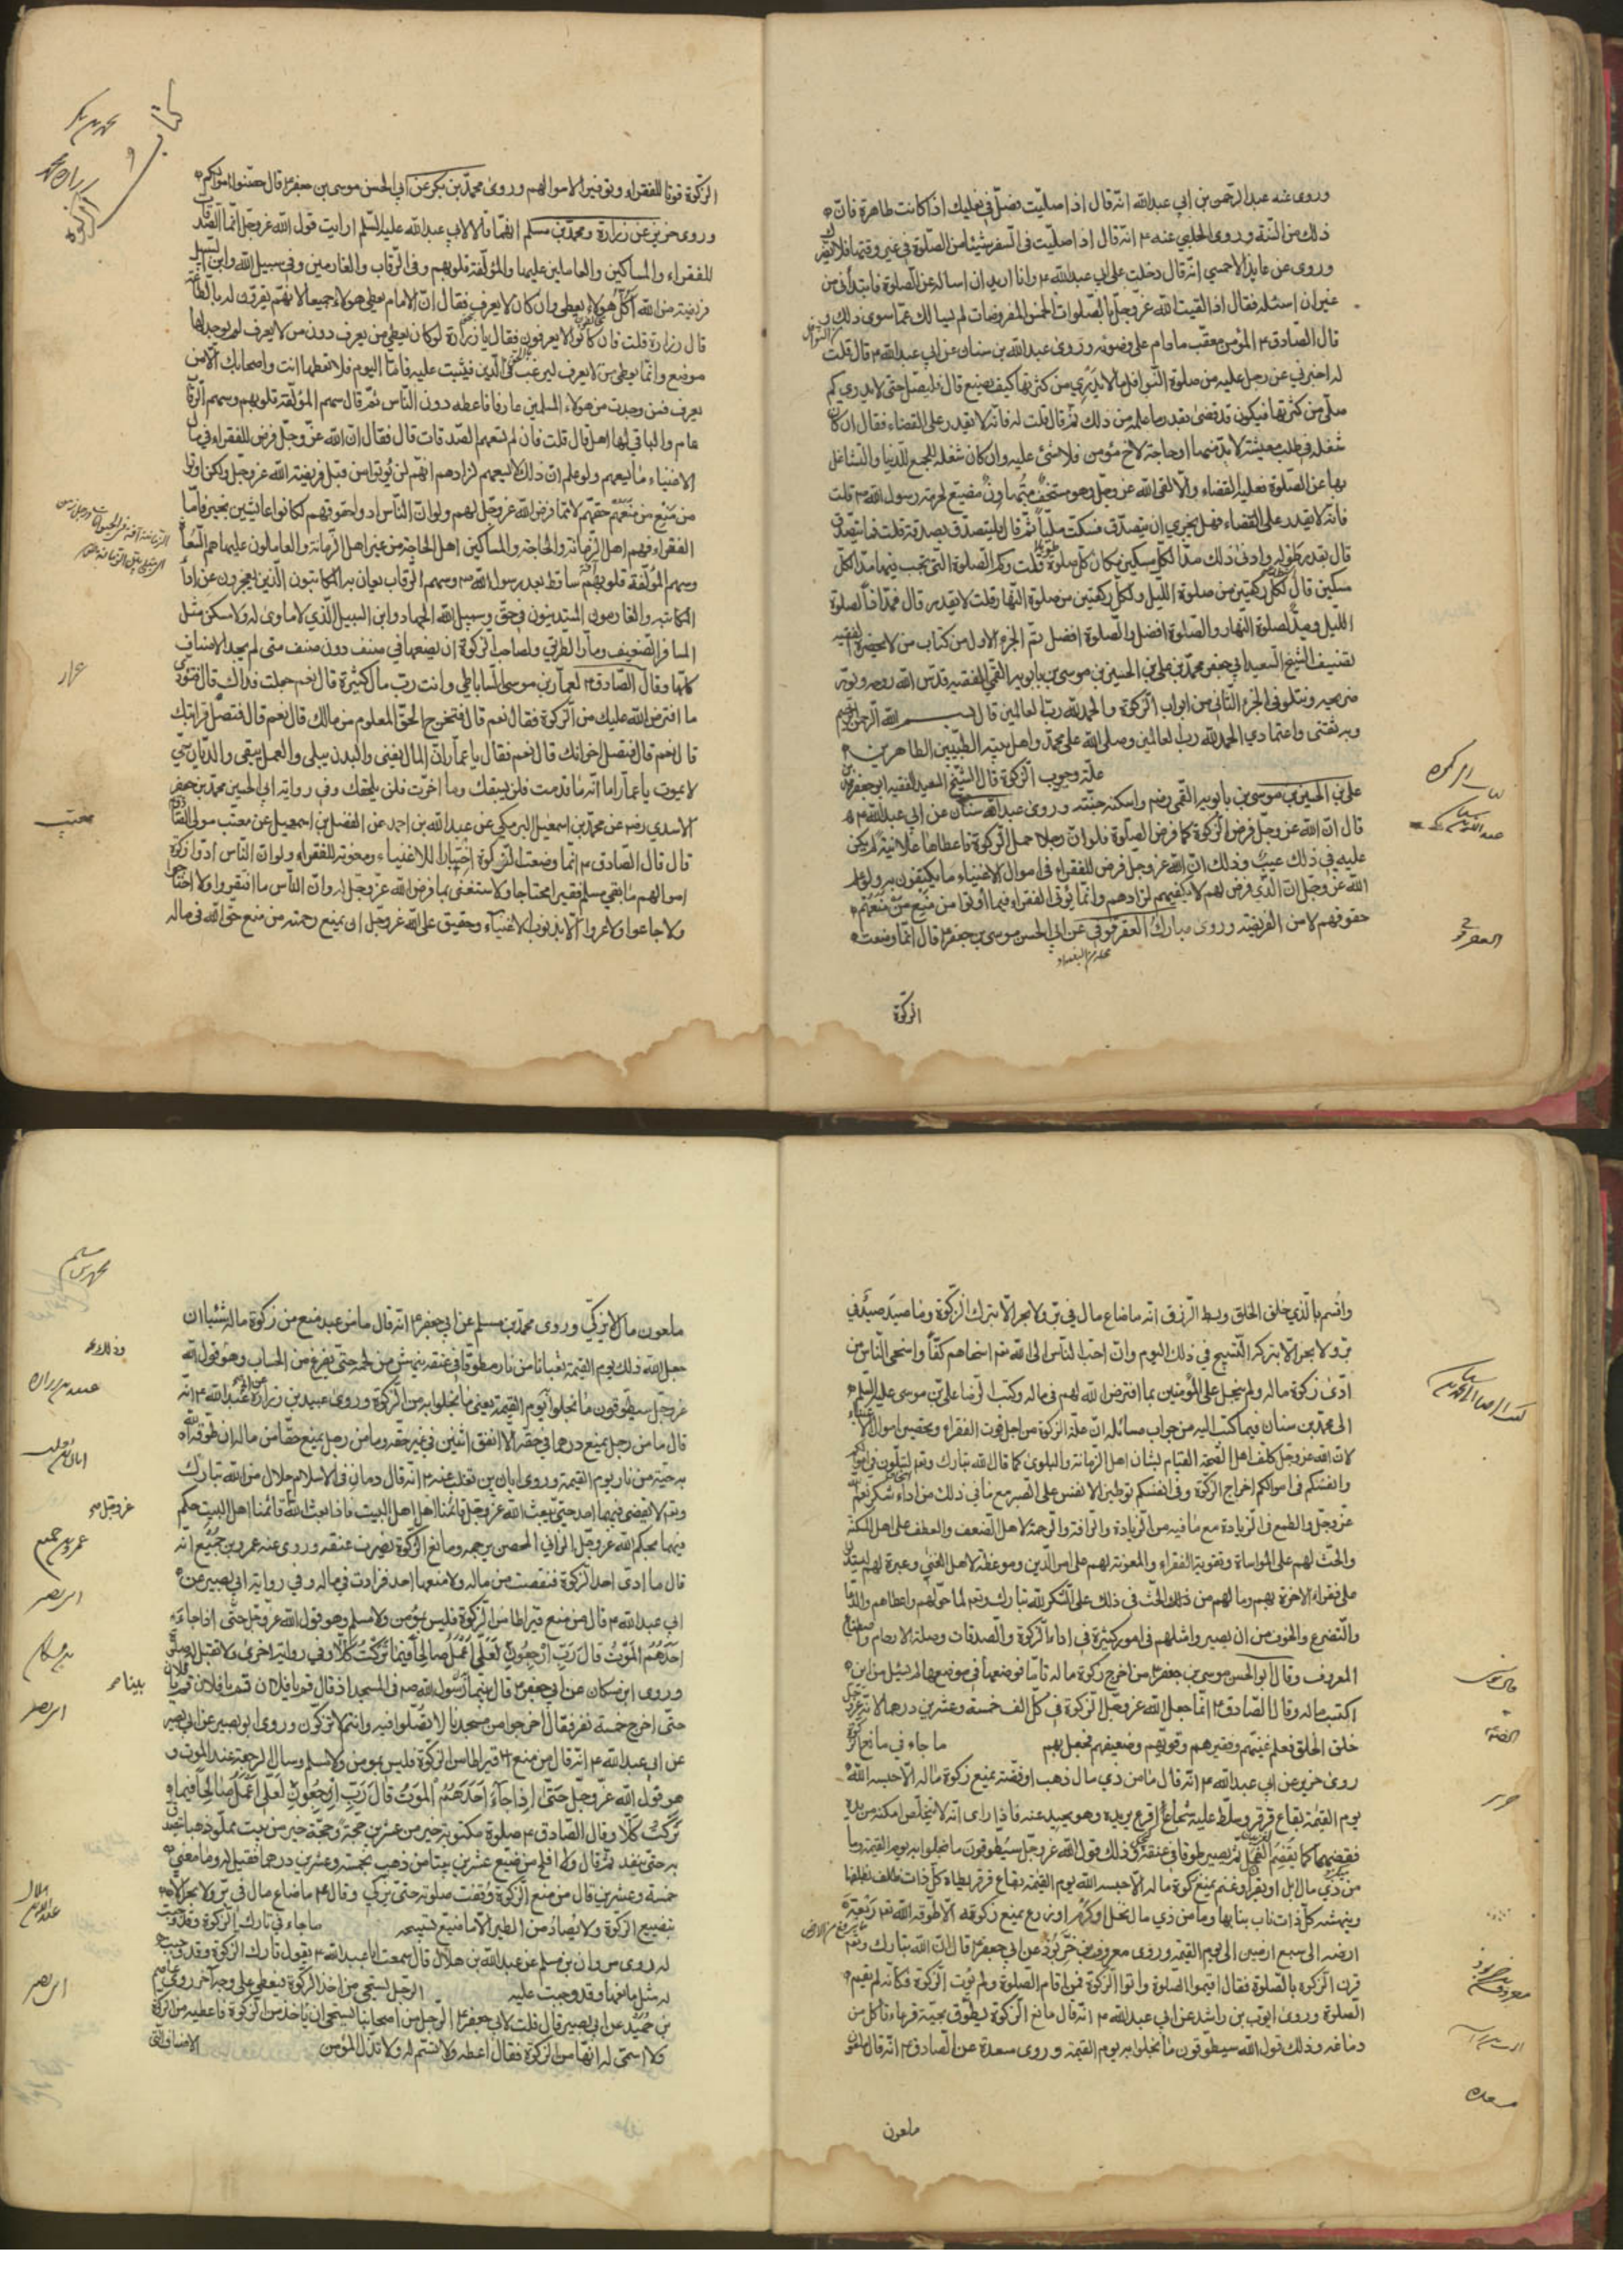 وروى عنه عبد الرحمن بن ابي عبد الله انه قال اذا صليت فصل في نعليك اذا كانت طاهرة فان
ذلك من السنة وروى الحلبي عنه ع انه قال اذا صليت في السفر شيئا من الصلوة في غير وقتها فلا يضر
وروى عن عايذ الاحمسي انه قال دخلت على ابي عبد الله ع وانا اريد ان اساله عن الصلوة فابتدأني من
غير ان اسئله فقال اذا لقيت الله عز وجل بالصلوات الخمس المفروضات لم يسالك عما سوى ذلك و
قال الصادق ع المؤمن معقب مادام على وضوئه وروى عبد الله بن سنان عن ابي عبد الله ع قال قلت
له اخبرني عن رجل عليه من صلوة النوافل ما لا يدري من كثرتها كيف يصنع قال فليصل حتى لا يدري كم
صلى من كثرتها فيكون قد قضى بقدر ما علمه من ذلك ثم قال قلت له فانه لا يقدر على القضاء فقال ان كان
شغله في طلب معيشة لا بد منها او حاجة لاخ مؤمن فلا شئ عليه وان كان شغله لجميع الدنيا والتشاغل
بها عن الصلوة فعليه القضاء والا لقى الله عز وجل وهو مستخف متهاون مضيع لحرمة رسول الله ص قلت
فانه لا يقدر على القضاء فهل يجزي ان يتصدق فسكت مليا ثم قال ليتصدق بصدقة قلت فما يتصدق
قال بقدر طوله وادنى ذلك مدا لكل مسكين مكان كل صلوة قلت وكم الصلوة التي تجب فيها مد لكل
مسكين قال لكل ركعتين من صلوة الليل ولكل ركعتين من صلوة النهار قلت لا يقدر قال فمد اذا لصلوة
الليل ومد لصلوة النهار والصلوة افضل والصلوة افضل تم الجزء الاول من كتاب من لا يحضره الفقيه
تصنيف الشيخ السعيد ابي جعفر محمد بن علي بن الحسين بن موسى بن بابويه القمي الفقيه قدس الله روحه ونور
ضريحه ويتلوه في الجزء الثاني من ابواب الزكوة والحمد لله رب العالمين قال بسم الله الرحمن الرحيم
وبه ثقتي واعتمادي الحمد لله رب العالمين وصلى الله على محمد واهل بيته الطيبين الطاهرين
علة وجوب الزكوة قال الشيخ السعيد الفقيه ابو جعفر محمد بن
علي بن الحسين بن موسى بن بابويه القمي رضه واسكنه جنته وروى عبد الله سنان عن ابي عبد الله ع
قال ان الله عز وجل فرض الزكوة كما فرض الصلوة فلو ان رجلا حمل الزكوة فاعطاها علانية لم يكن
عليه في ذلك عيب وذلك ان الله عز وجل فرض للفقراء في اموال الاغنياء ما يكتفون به ولو علم
الله عز وجل ان الذي فرض لهم لا يكفيهم لزادهم وانما يؤتى الفقراء فيما اوتوا من منع من منعهم
حقوقهم لا من الفريضة وروى مبارك العقرقوفي عن ابي الحسن موسى بن جعفر ع قال انما وضعت
الزكوة
الزكوة قوتا للفقراء وتوفيرا لاموالهم وروى محمد بن بكر عن ابي الحسن موسى بن جعفر ع قال حصنوا اموالكم
وروى حريز عن زرارة ومحمد بن مسلم انهما قالا لابي عبد الله عليه السلم ارايت قول الله عز وجل انما الصدقات
للفقراء والمساكين والعاملين عليها والمؤلفة قلوبهم وفي الرقاب والغارمين وفي سبيل الله وابن السبيل
فريضة من الله أكل هؤلاء يعطى وان كان لا يعرف فقال ان الامام يعطي هؤلاء جميعا لانهم يقرون له بالطاعة
قال زرارة قلت فان كانوا لا يعرفون فقال يا زرارة لو كان يعطي من يعرف دون من لا يعرف لم يوجد لها
موضع وانما يعطي من لا يعرف ليرغب في الدين فيثبت عليه فاما اليوم فلا تعطها انت واصحابك الا من
يعرف فمن وجدت من هؤلاء المسلمين عارفا فاعطه دون الناس ثم قال سهم المؤلفة قلوبهم وسهم الرقاب
عام والباقي لها اهل قال قلت فان لم تسعهم الصدقات قال فقال ان الله عز وجل فرض للفقراء في مال
الاغنياء ما يسعهم ولو علم ان ذلك لا يسعهم لزادهم انهم لن يؤتوا من قبل فريضة الله عز وجل ولكن اوتوا
من منع من منعهم حقهم لا مما فرض الله عز وجل لهم ولو ان الناس ادوا حقوقهم لكانوا عائشين بخير فاما
الفقراء فهم اهل الزمانة والحاجة والمساكين اهل الحاجة من غير اهل الزمانة والعاملون عليها هم السعاة
وسهم المؤلفة قلوبهم ساقط بعد رسول الله ص وسهم الرقاب يعان به المكاتبون الذين يعجزون عن اداء
المكاتبه والغارمون المستدينون في حق وسبيل الله الجهاد وابن السبيل الذي لا ماوى له ولا مسكن مثل
المسافر الضعيف ومار الطريق ولصاحب الزكوة ان يضعها في صنف دون صنف متى لم يجد الاصناف
كلها وقال الصادق ع لعمار بن موسى الساباطي وانت رب مال كثيرة قال نعم جعلت فداك قال فتؤدي
ما افترض الله عليك من الزكوة فقال نعم قال فتخرج الحق المعلوم من مالك قال نعم قال فتصل قرابتك
قال نعم قال فتصل اخوانك قال نعم فقال يا عمار ان المال يفنى والبدن يبلى والعمل يبقى والديان حي
لا يموت يا عمار اما انه ما قدمت فلن يسبقك وما اخرت فلن يلحقك وفي رواية ابي الحسين محمد بن جعفر
الاسدي رضه عن محمد بن اسمعيل البرمكي عن عبد الله بن احمد عن الفضل بن اسمعيل عن معتب مولى الصادق
قال قال الصادق ع انما وضعت الزكوة اختبارا للاغنياء ومعونة للفقراء ولو ان الناس ادوا زكوة
اموالهم ما بقي مسلم فقيرا محتاجا ولاستغنى بما فرض الله عز وجل له وان الناس ما افتقروا ولا احتاجوا
ولا جاعوا ولا عروا الا بذنوب الاغنياء وحقيق على الله عز وجل ان يمنع رحمته من منع حق الله في ماله
واقسم بالذي خلق الخلق وبسط الرزق انه ما ضاع مال في بر ولا بحر الا بترك الزكوة وما صيد صيد في
بر ولا بحر الا بتركه التسبيح في ذلك اليوم وان احب الناس الى الله تعم اسخاهم كفا واسخى الناس من
ادى زكوة ماله ولم يبخل على المؤمنين بما افترض الله لهم في ماله وكتب الرضا علي بن موسى عليه السلم
الى محمد بن سنان فيما كتب اليه من جواب مسائله ان علة الزكوة من اجل قوت الفقراء وتحصين اموال الاغنياء
لان الله عز وجل كلف اهل الصحة القيام بشان اهل الزمانة والبلوى كما قال الله تبارك وتعم لتبلون في اموالكم
وانفسكم في اموالكم اخراج الزكوة وفي انفسكم توطين الانفس على الصبر مع ما في ذلك من اداء شكر نعم الله
عز وجل والطمع في الزيادة مع ما فيه من الزيادة والرافة والرحمة لاهل الضعف والعطف على اهل المسكنة
والحث لهم على المواساة وتقوية الفقراء والمعونة لهم على امر الدين وموعظة لاهل الغنى وعبرة لهم ليستدلوا
على فقراء الاخرة بهم وما لهم من الحث في ذلك على الشكر لله تبارك وتعم لما خولهم واعطاهم والدعاء
والتضرع والخوف من ان يصيروا مثلهم في امور كثيرة في اداء الزكوة والصدقات وصلة الارحام واصطناع
المعروف وقال ابو الحسن موسى بن جعفر ع من اخرج زكوة ماله تاما فوضعها في موضعها لم يسئل من اين
اكتسب ماله وقال الصادق ع انما جعل الله عز وجل الزكوة في كل الف خمسة وعشرين درهما لانه عز وجل
خلق الخلق فعلم غنيهم وفقيرهم وقويهم وضعيفهم فجعل بهم ما جاء في مانع الزكوة
روى حريز عن ابي عبد الله ع انه قال ما من ذي مال ذهب او فضة يمنع زكوة ماله الا حبسه الله
يوم القيمة بقاع قرقر وسلط عليه شجاع اقرع يريده وهو يحيد عنه فاذا راى انه لا يتخلص امكنه من يده
فقضمها كما يقضم الفجل ثم يصير طوقا في عنقه وذلك قول الله عز وجل سيطوقون ما بخلوا به يوم القيمة وما
من ذي مال ابل او بقر او غنم يمنع زكوة ماله الا حبسه الله يوم القيمة بقاع قرقر يطاه كل ذات ظلف بظلفها
وينهشه كل ذات ناب بنابها وما من ذي مال نخل او كرم او زرع يمنع زكوته الا طوقه الله تعم ريعة
ارضه الى سبع ارضين الى يوم القيمة وروى معروف بن خربوذ عن ابي جعفر ع قال ان الله تبارك وتعم
قرن الزكوة بالصلوة فقال اقيموا الصلوة واتوا الزكوة فمن اقام الصلوة ولم يؤت الزكوة فكانه لم يقيم
الصلوة وروى ايوب بن راشد عن ابي عبد الله ع انه قال مانع الزكوة يطوق بحية قرعاء تاكل من
دماغه وذلك قول الله سيطوقون ما بخلوا به يوم القيمة وروى مسعدة عن الصادق ع انه قال ملعون
ملعون
ملعون مال لا يزكي وروى محمد بن مسلم عن ابي جعفر ع انه قال ما من عبد منع من زكوة ماله شيئا ان
جعل الله ذلك يوم القيمة ثعبانا من نار مطوقا في عنقه ينهش من لحمه حتى يفرغ من الحساب وهو قول الله
عز وجل سيطوقون ما بخلوا به يوم القيمة يعني ما بخلوا به من الزكوة وروى عبيد بن زرارة عن ابي عبد الله ع انه
قال ما من رجل يمنع درهما في حقه الا انفق اثنين في غير حقه وما من رجل يمنع حقا من ماله ان طوقه الله
به حية من نار يوم القيمة وروى ابان بن تغلب عنه ع انه قال دمان في الاسلام حلال من الله تبارك
وتعم لا يقضى فيهما احد حتى يبعث الله عز وجل قائمنا اهل البيت فاذا بعث الله قائمنا اهل البيت حكم
فيهما بحكم الله عز وجل الزاني المحصن يرجمه ومانع الزكوة يضرب عنقه وروى عنه عمرو بن جميع انه
قال ما ادى احد الزكوة فنقصت من ماله ولا منعها احد فزادت في ماله وفي رواية ابي بصير عن
ابي عبد الله ع قال من منع قيراطا من الزكوة فليس بمؤمن ولا مسلم وهو قول الله عز وجل حتى اذا جاء
احدهم الموت قال رب ارجعون لعلي اعمل صالحا فيما تركت كلا وفي رواية اخرى ولا تقبل له صلوة
وروى ابن مسكان عن ابي جعفر ع قال بينما رسول الله ص في المسجد اذ قال قم يا فلان قم يا فلان قم يا فلان
حتى اخرج خمسة نفر فقال اخرجوا من مسجدنا لا تصلوا فيه وانتم لا تزكون وروى ابو بصير عن ابي بصير
عن ابي عبد الله ع انه قال من منع قيراطا من الزكوة فليس بمؤمن ولا مسلم وسال الرجعة عند الموت و
هو قول الله عز وجل حتى اذا جاء احدهم الموت قال رب ارجعون لعلي اعمل صالحا فيما
تركت كلا وقال الصادق ع صلوة مكتوبة خير من عشرين حجة وحجة خير من بيت مملو ذهبا ينفقه
بر حتى ينفد ثم قال ولا افلح من ضيع عشرين بيتا من ذهب بخمسة وعشرين درهما فقيل له وما معنى
خمسة وعشرين قال من منع الزكوة وقفت صلوته حتى يزكي وقال ع ما ضاع مال في بر ولا بحر الا
بتضييع الزكوة ولا يصاد من الطير الا ما ضيع تسبيحه ما جاء في تارك الزكوة وقد وجبت
له روى مروان بن مسلم عن عبد الله بن هلال قال سمعت ابا عبد الله ع يقول تارك الزكوة وقد وجبت
له مثل مانعها وقد وجبت عليه الرجل يستحي من اخذ الزكوة فيعطى على وجه آخر روى عاصم
بن حميد عن ابي بصير قال قلت لابي جعفر ع الرجل من اصحابنا يستحي ان ياخذ من الزكوة فاعطيه من الزكوة
ولا اسمي له انها من الزكوة فقال اعطه ولا تسم له ولا تذل المؤمن الاصناف التي